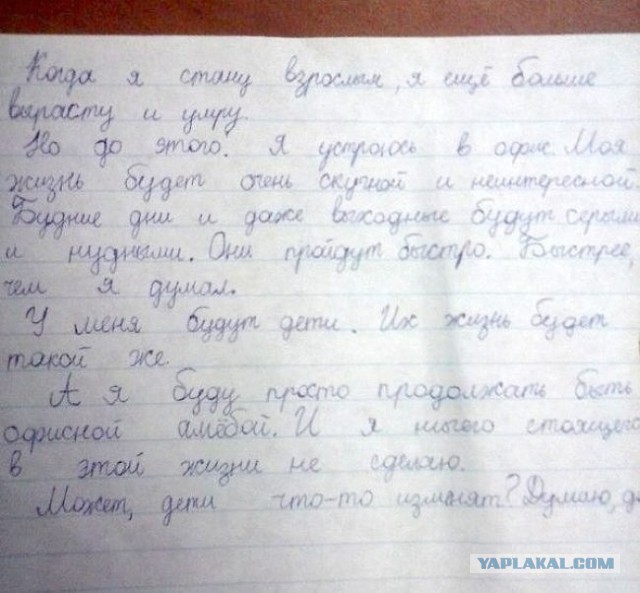 Когда я стану взрослым, я ещё больше
вырасту и умру.
Но до этого. Я устроюсь в офис. Моя
жизнь будет очень скучной и неинтересной.
Будние дни и даже выходные будут серыми
и нудными. Они пройдут быстро. Быстрее,
чем я думал.
У меня будут дети. Их жизнь будет
такой же.
А я буду просто продолжать быть
офисной амёбой. И я ничего стоящего
в этой жизни не сделаю.
Может, дети что-то изменят? Думаю, да
YAPLAKAL.COM